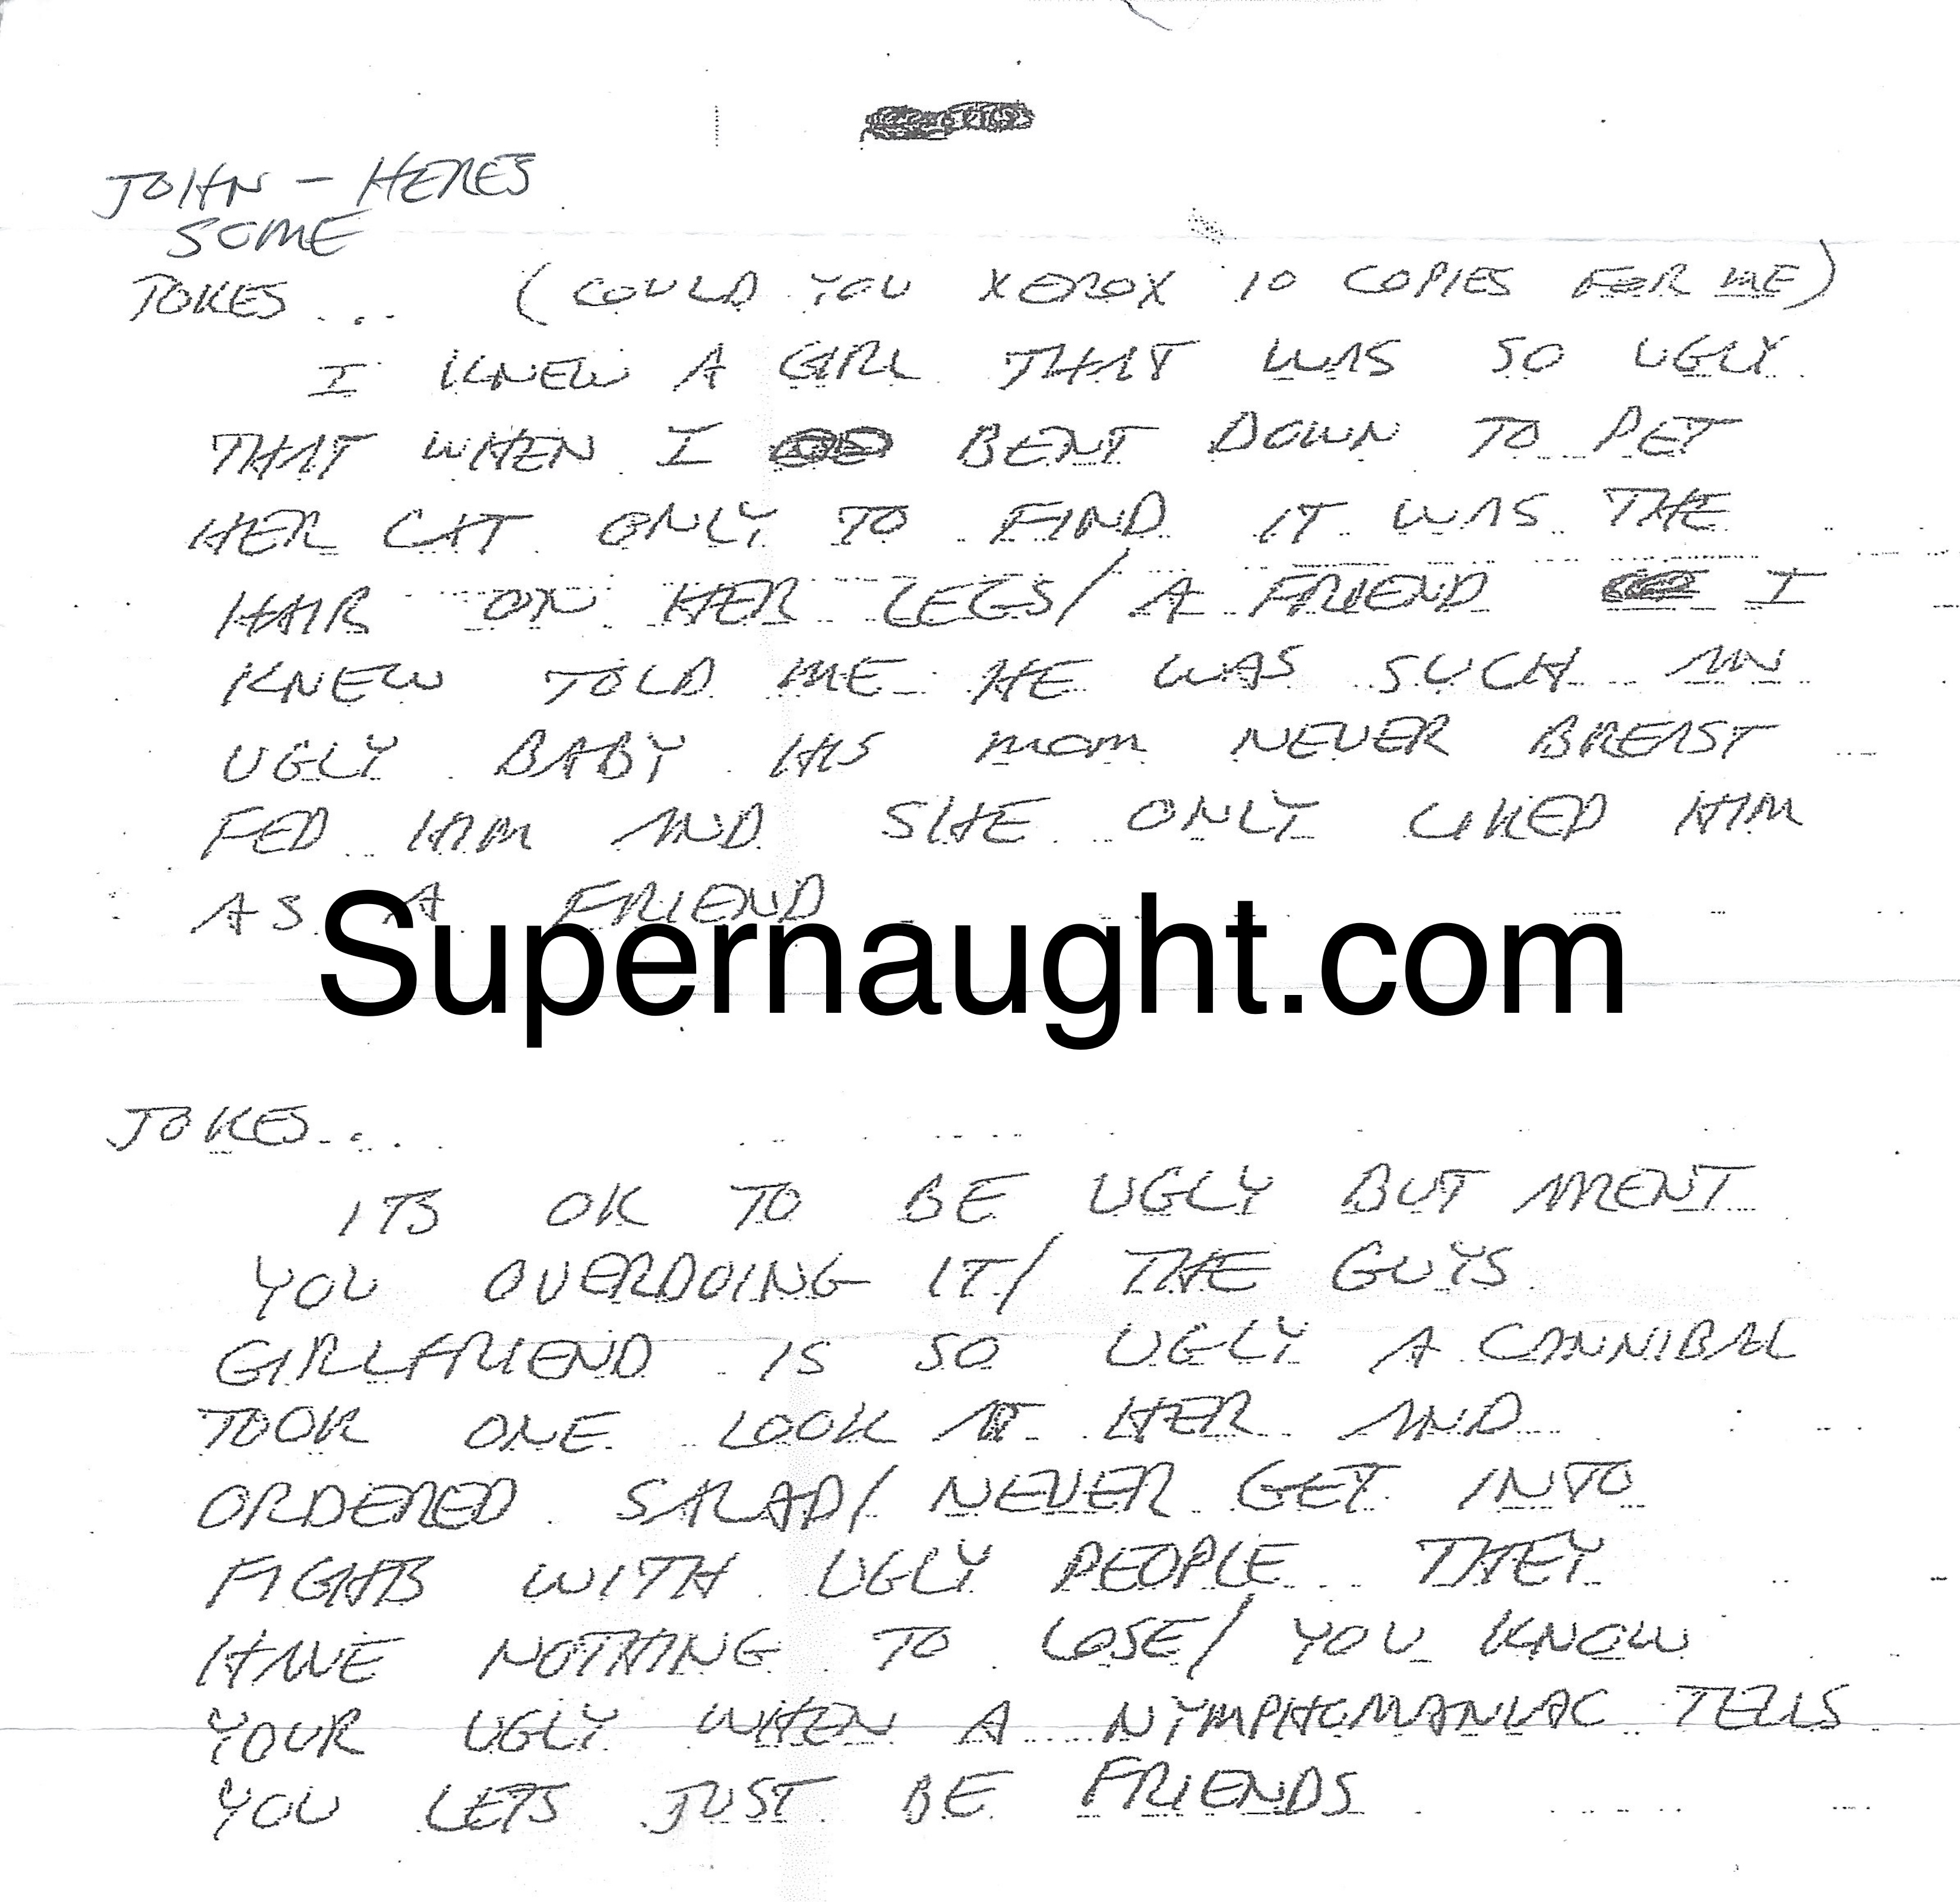 JOHN - HERES
SOME
JOKES... (COULD YOU XEROX 10 COPIES FOR ME)
I KNEW A GIRL THAT WAS SO UGLY
THAT WHEN I BENT DOWN TO PET
HER CAT ONLY TO FIND IT WAS THE
HAIR ON HER LEGS/ A FRIEND I
KNEW TOLD ME HE WAS SUCH AN
UGLY BABY HIS MOM NEVER BREAST
FED HIM AND SHE ONLY LIKED HIM
AS A FRIEND
Supernaught.com
JOKES....
ITS OK TO BE UGLY BUT ARENT
YOU OVERDOING IT/ THE GUYS
GIRLFRIEND IS SO UGLY A CANNIBAL
TOOK ONE LOOK AT HER AND
ORDERED SALAD/ NEVER GET INTO
FIGHTS WITH UGLY PEOPLE THEY
HAVE NOTHING TO LOSE/ YOU KNOW
YOUR UGLY WHEN A NYMPHOMANIAC TELLS
YOU LETS JUST BE FRIENDS